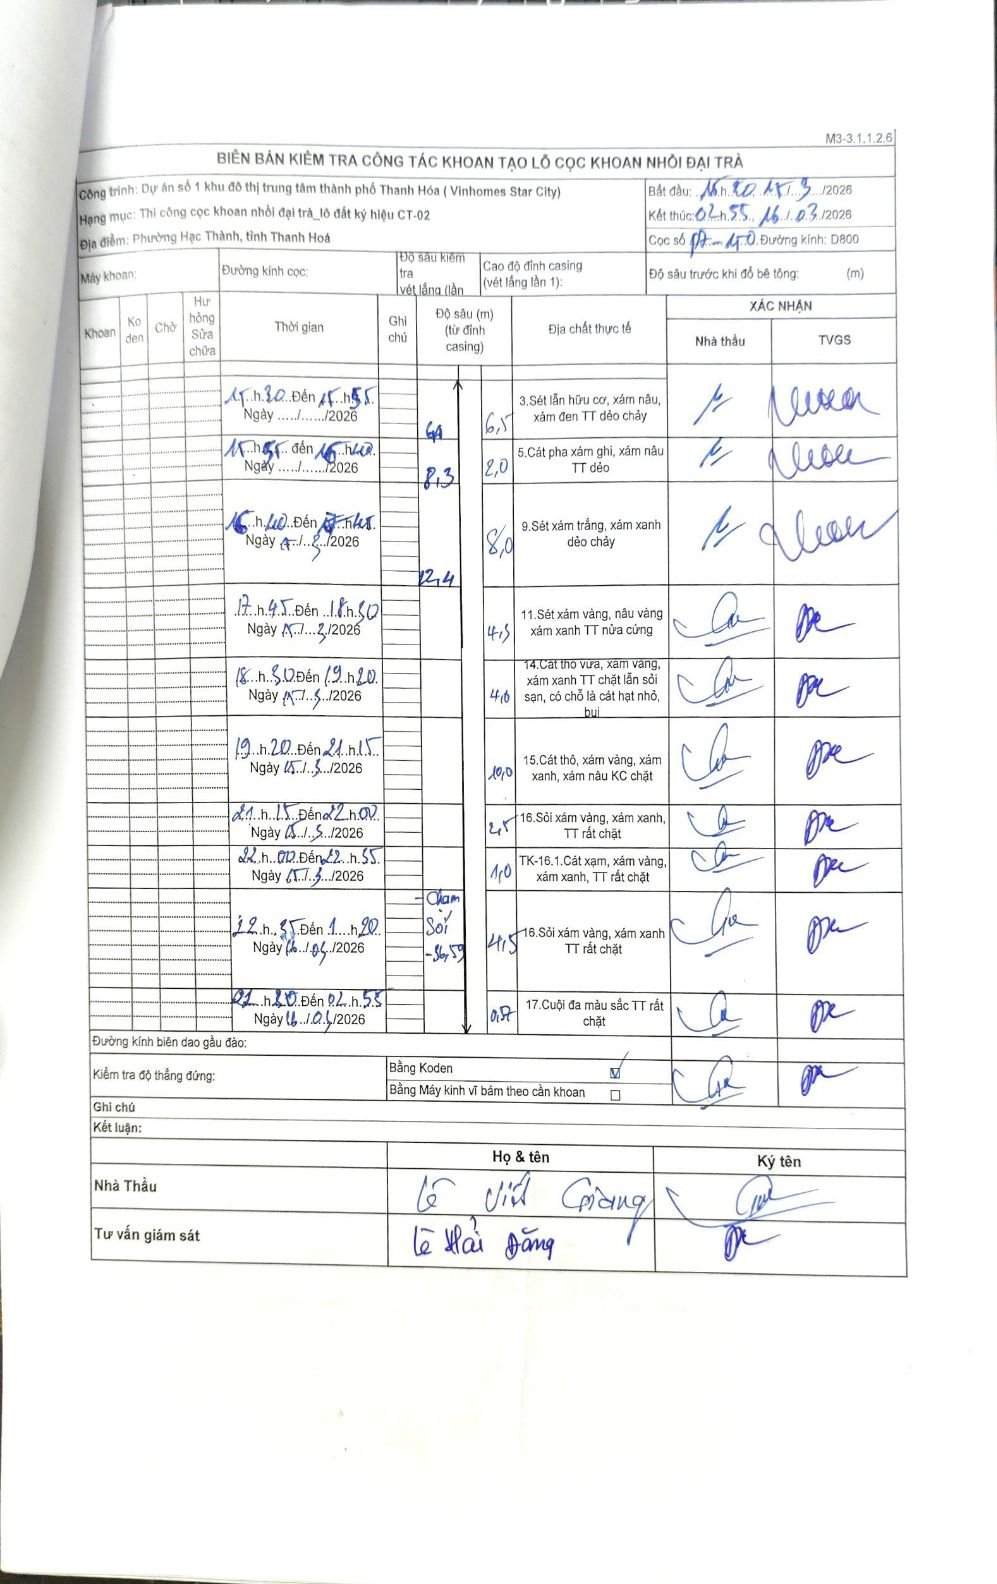 M3-3.1.1.2.6
BIÊN BẢN KIỂM TRA CÔNG TÁC KHOAN TẠO LỖ CỌC KHOAN NHỒI ĐẠI TRÀ
Công trình: Dự án số 1 khu đô thị trung tâm thành phố Thanh Hóa ( Vinhomes Star City)
Hạng mục: Thi công cọc khoan nhồi đại trà_lô đất ký hiệu CT-02
Địa điểm: Phường Hạc Thành, tỉnh Thanh Hoá
Bắt đầu: h 20 15/3/2026
Kết thúc: 02 h 55, 16/03/2026
Cọc số Đường kính: D800
Máy khoan:
Đường kính cọc:
Độ sâu kiểm tra vét lắng (lần
Cao độ đỉnh casing (vét lắng lần 1):
Độ sâu trước khi đổ bê tông: (m)
Khoan
Ko đen
Chờ
Hư hỏng Sửa chữa
Thời gian
Ghi chú
Độ sâu (m) (từ đỉnh casing)
Địa chất thực tế
XÁC NHẬN
Nhà thầu
TVGS
15 h 20 Đến 15 h 55
Ngày ...../......./2026
6,5
3.Sét lẫn hữu cơ, xám nâu, xám đen TT dẻo chảy
15 h 55 đến 16 h 40
Ngày ...../......./2026
8,3
2,0
5.Cát pha xám ghi, xám nâu TT dẻo
16 h 40 Đến 17 h 45
Ngày 15/3/2026
12,4
8,0
9.Sét xám trắng, xám xanh dẻo chảy
17 h 45 Đến 18 h 30
Ngày 15/3/2026
4,5
11.Sét xám vàng, nâu vàng xám xanh TT nửa cứng
18 h 30 Đến 19 h 20
Ngày 15/3/2026
4,0
14.Cát thô vừa, xám vàng, xám xanh TT chặt lẫn sỏi sạn, có chỗ là cát hạt nhỏ, bụi
19 h 20 Đến 21 h 15
Ngày 15/3/2026
10,0
15.Cát thô, xám vàng, xám xanh, xám nâu KC chặt
21 h 15 Đến 22 h 00
Ngày 15/3/2026
2,5
16.Sỏi xám vàng, xám xanh, TT rất chặt
22 h 00 Đến 22 h 35
Ngày 15/3/2026
1,0
TK-16.1.Cát xạm, xám vàng, xám xanh, TT rất chặt
- Chạm
Sỏi
-36,59
22 h 35 Đến 1 h 20
Ngày 16/03/2026
4,5
16.Sỏi xám vàng, xám xanh TT rất chặt
01 h 20 Đến 02 h 55
Ngày 16/03/2026
17.Cuội đa màu sắc TT rất chặt
Đường kính biên dao gầu đào:
Kiểm tra độ thẳng đứng:
Bằng Koden
Bằng Máy kinh vĩ bám theo cần khoan
Ghi chú
Kết luận:
Họ & tên
Ký tên
Nhà Thầu
Lê Viết Giang
Tư vấn giám sát
Lê Hải Đăng